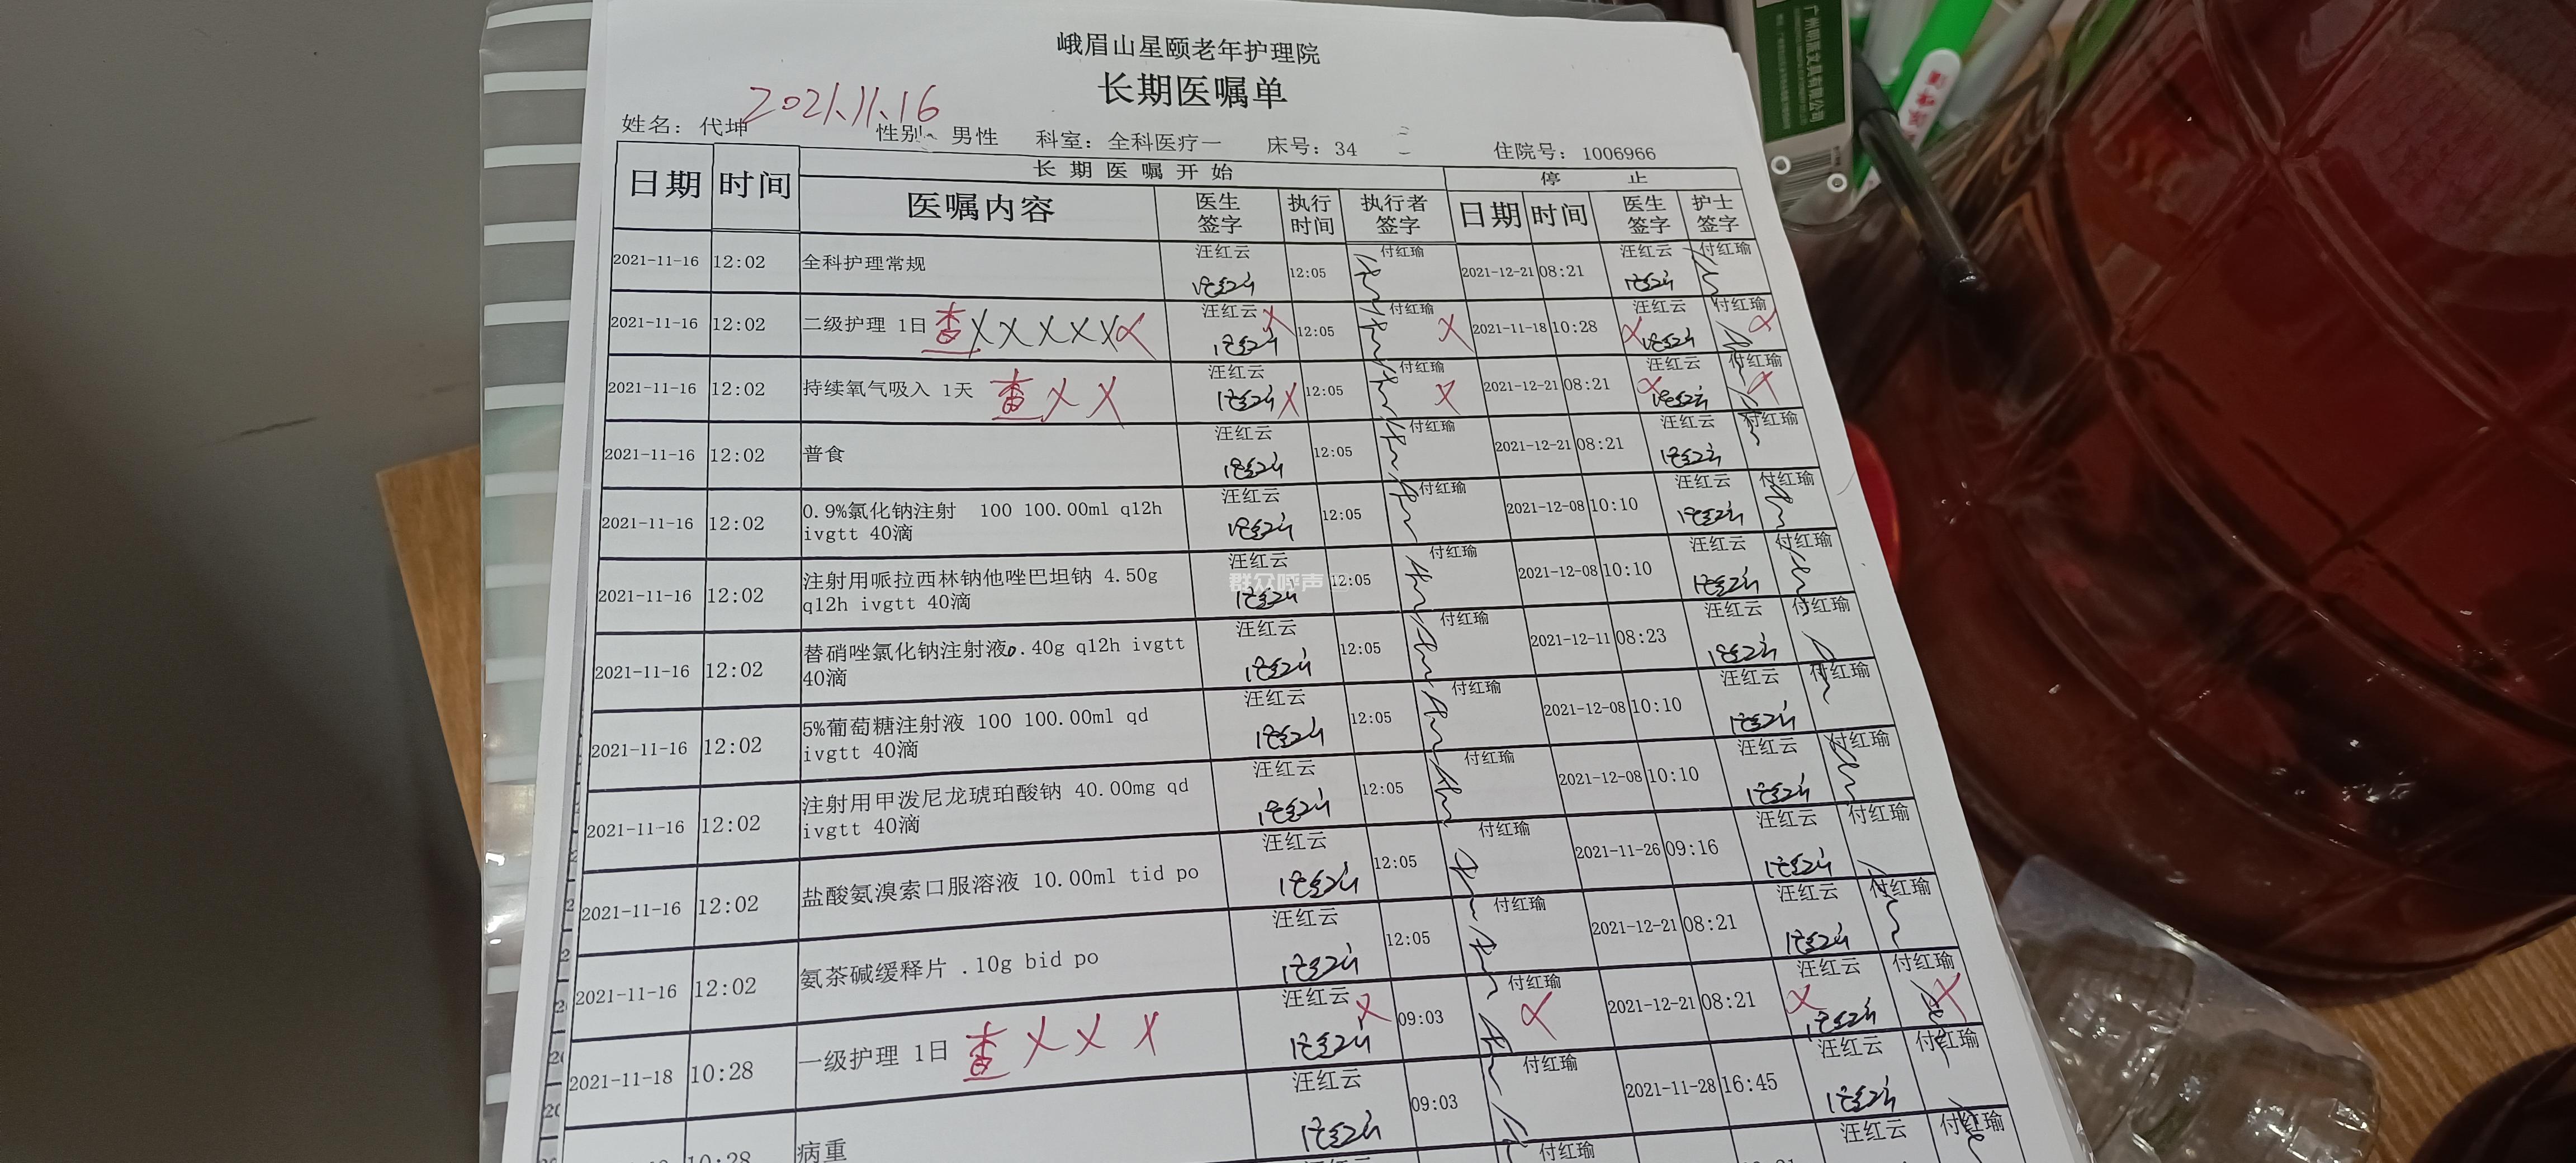 峨眉山星颐老年护理院
长期医嘱单
2021.11.16
姓名：代坤 性别 男性 科室：全科医疗一 床号：34 住院号：1006966
长期医嘱开始 停止
日期 时间 医嘱内容 医生签字 执行时间 执行者签字 日期 时间 医生签字 护士签字
2021-11-16 12:02 全科护理常规 汪红云 12:05 付红瑜 2021-12-21 08:21 汪红云 付红瑜
2021-11-16 12:02 二级护理 1日 查XXXXXX 汪红云 X 12:05 付红瑜 X 2021-11-18 10:28 X 汪红云 付红瑜 X
2021-11-16 12:02 持续氧气吸入 1天 查XX 汪红云 X 12:05 付红瑜 X 2021-12-21 08:21 X 汪红云 付红瑜 X
2021-11-16 12:02 普食 汪红云 12:05 付红瑜 2021-12-21 08:21 汪红云 付红瑜
2021-11-16 12:02 0.9%氯化钠注射 100 100.00ml q12h 汪红云 12:05 付红瑜 2021-12-08 10:10 汪红云 付红瑜
ivgtt 40滴
2021-11-16 12:02 注射用哌拉西林钠他唑巴坦钠 4.50g 汪红云 12:05 付红瑜 2021-12-08 10:10 汪红云 付红瑜
q12h ivgtt 40滴
群众呼声
2021-11-16 12:02 替硝唑氯化钠注射液0.40g q12h ivgtt 汪红云 12:05 付红瑜 2021-12-11 08:23 汪红云 付红瑜
40滴
2021-11-16 12:02 5%葡萄糖注射液 100 100.00ml qd 汪红云 12:05 付红瑜 2021-12-08 10:10 汪红云 付红瑜
ivgtt 40滴
2021-11-16 12:02 注射用甲泼尼龙琥珀酸钠 40.00mg qd 汪红云 12:05 付红瑜 2021-12-08 10:10 汪红云 付红瑜
ivgtt 40滴
2021-11-16 12:02 盐酸氨溴索口服溶液 10.00ml tid po 汪红云 12:05 付红瑜 2021-11-26 09:16 汪红云 付红瑜
2021-11-16 12:02 氨茶碱缓释片 .10g bid po 汪红云 12:05 付红瑜 2021-12-21 08:21 汪红云 付红瑜
2021-11-18 10:28 一级护理 1日 查XXX 汪红云 X 09:03 付红瑜 X 2021-12-21 08:21 X 汪红云 付红瑜 X
10:28 病重 汪红云 09:03 付红瑜 2021-11-28 16:45 汪红云 付红瑜
付红瑜 汪红云 付红瑜